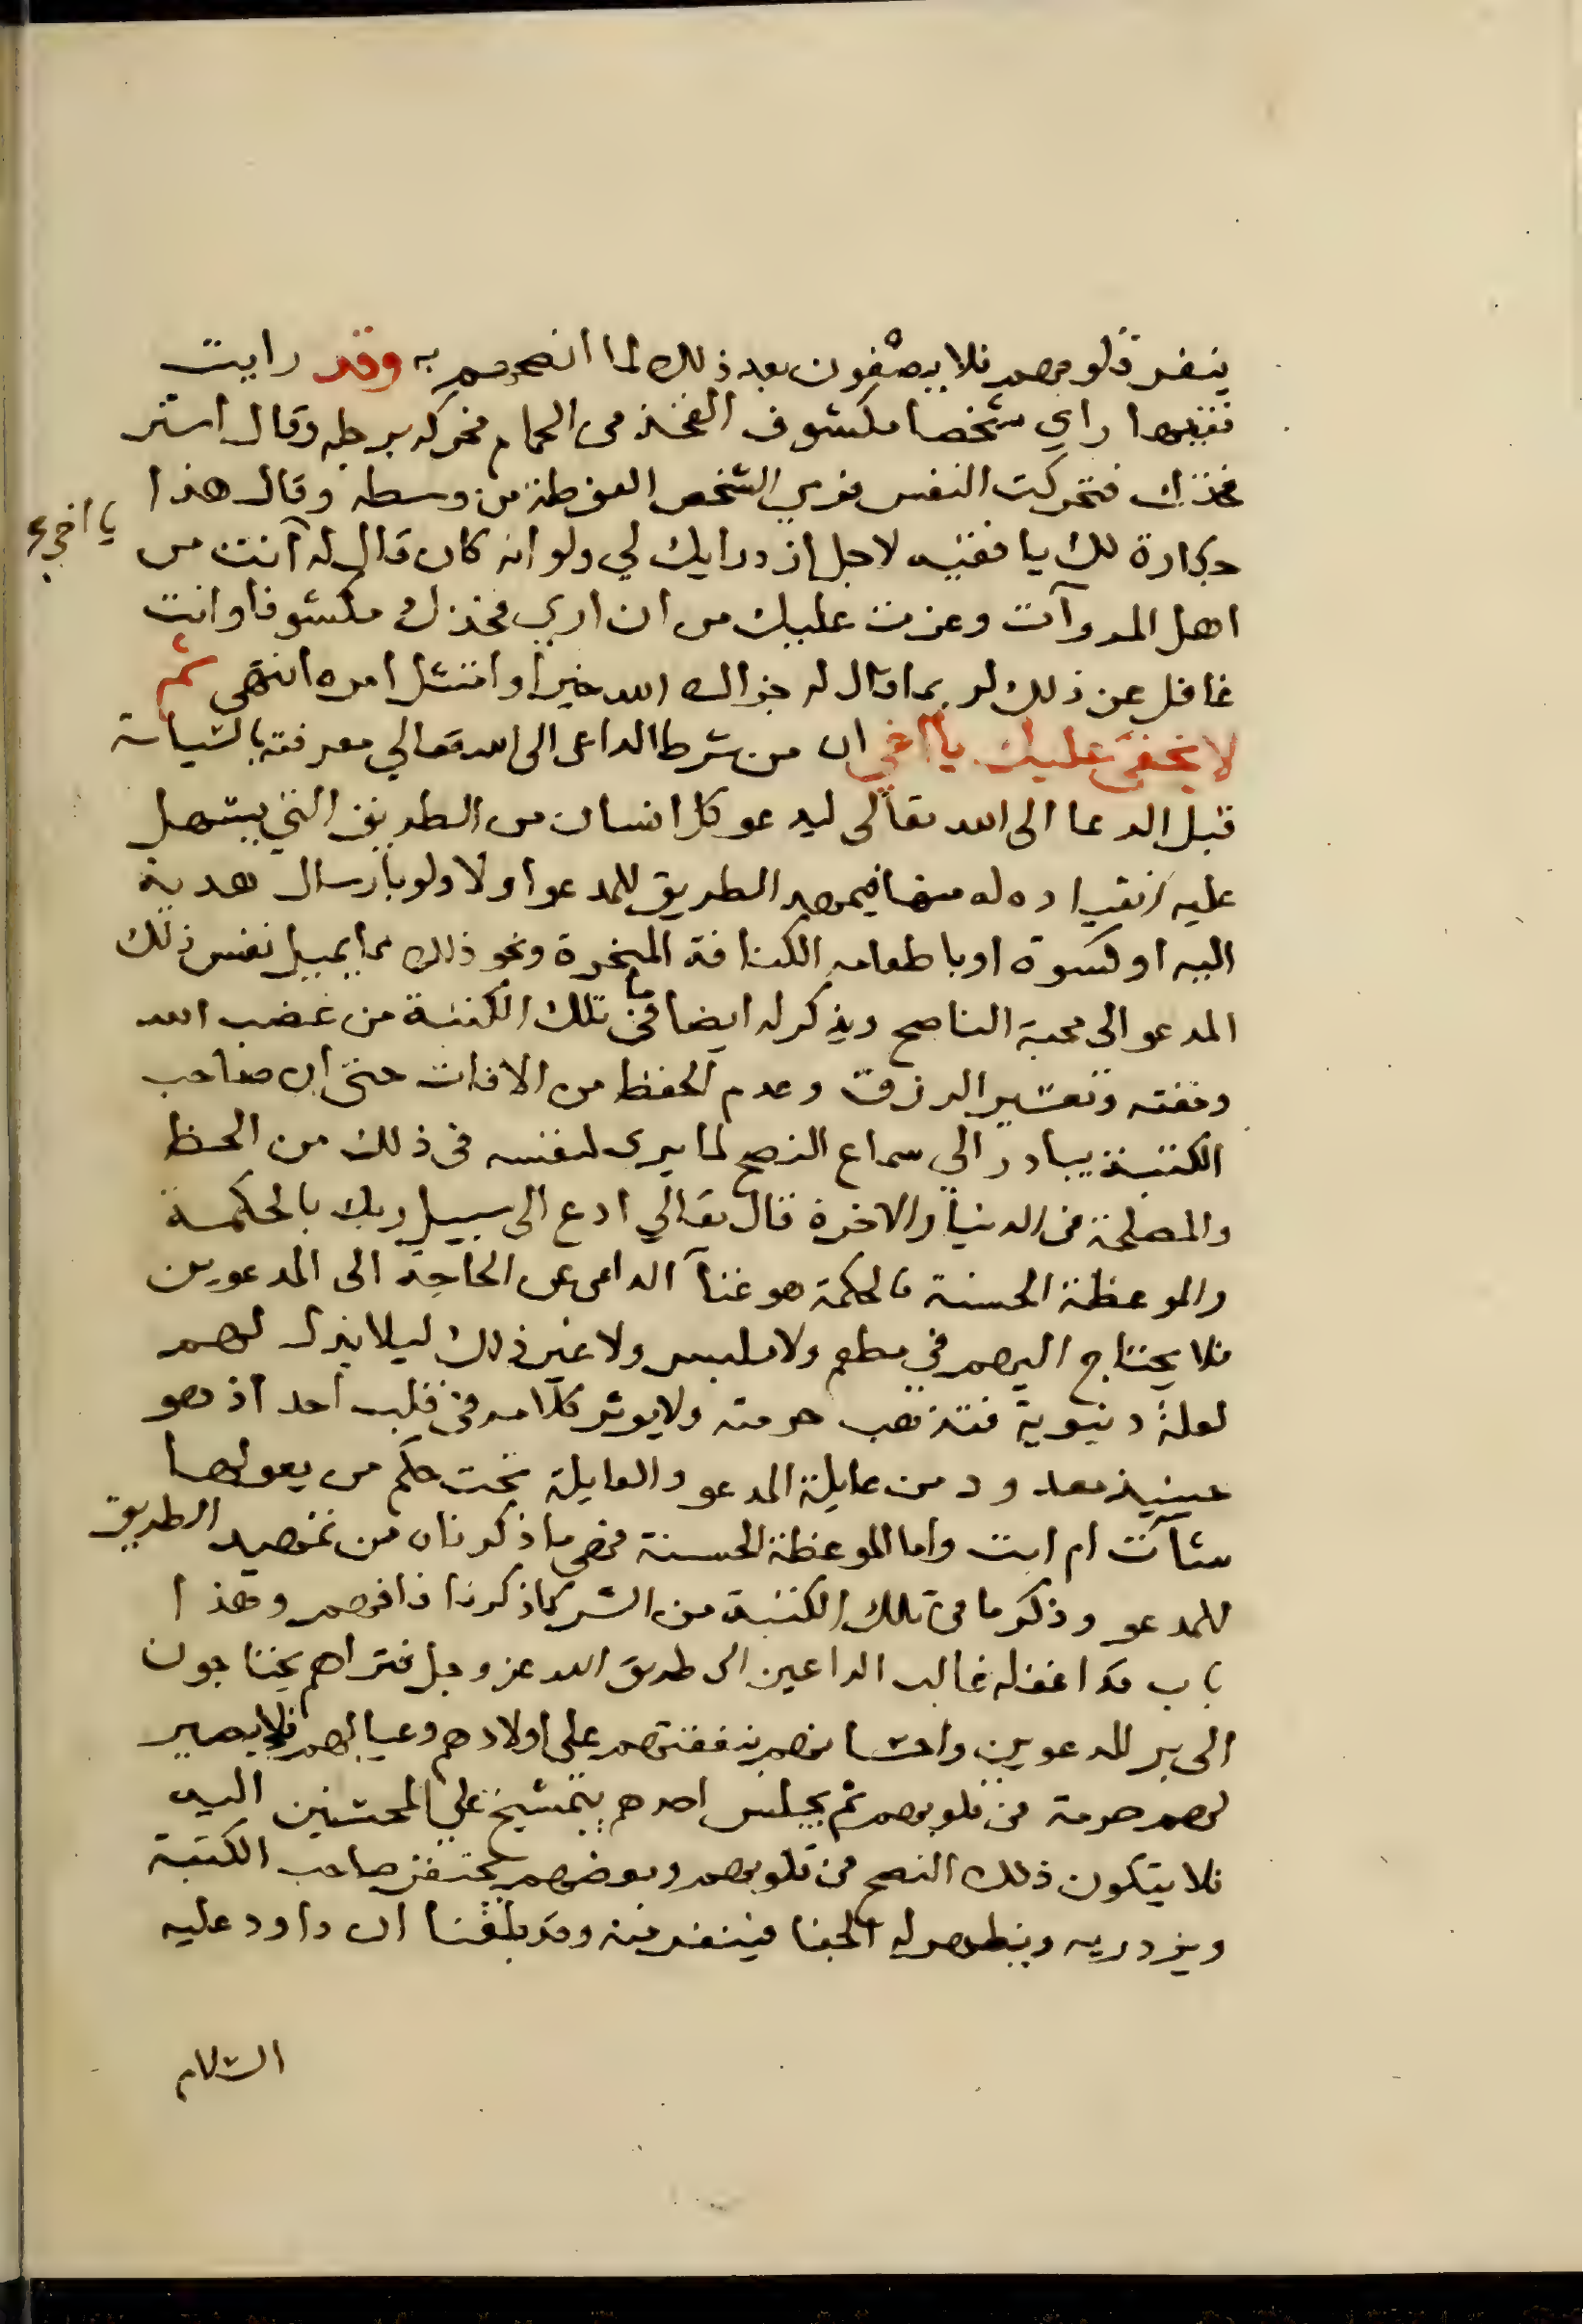 ينفر قلوبهم فلا يصغون بعد ذلك لما انصحهم به وقد رايت
فقيها راي شخصا مكشوف الفخذ في الحمام فحركه برجله وقال استر
فخذك فتحركت النفس فرمي الشخص الفوطة من وسطه وقال هذا
جكارة لك يا فقيه لاجل ازدرايك لي ولو انه كان قال له آنت من
يا اخي
اهل المروآت وعزت عليك من ان اري فخذك مكشوفا وانت
غافل عن ذلك لربما قال له جزاك الله خيرا وامتثل امره انتهي ثم
لا يخفي عليك يا اخي ان من شرط الداعي الى الله تعالي معرفته بالسياسة
قبل الدعا الى الله تعالى ليدعو كل انسان من الطريق التي يسهل
عليه انقياده له منها فيمهد الطريق للمدعو اولا ولو بارسال هدية
اليه او كسوة او باطعامه الكنافة المبخرة ونحو ذلك مما يميل نفس ذلك
المدعو الى محبة الناصح ويذكر له ايضا ما في تلك الكتبة من غضب الله
ومقته وتعسير الرزق وعدم الحفظ من الافات حتى ان صاحب
الكتبة يبادر الي سماع النصح لما يرى لنفسه في ذلك من الحظ
والمصلحة في الدنيا والاخرة قال تعالي ادع الى سبيل ربك بالحكمة
والموعظة الحسنة فالحكمة هو غنآ الداعي عن الحاجة الى المدعوين
فلا يحتاج اليهم في مطعم ولا ملبس ولا غير ذلك ليلا يذل لهم
لعلة دنيوية فتذهب حرمته ولا يوثر كلامه في قلب احد اذ هو
حينيذ معدود من عايلة المدعو والعايلة تحت حكم من يعولها
شآت ام ابت واما الموعظة الحسنة فهي ما ذكرناه من تمهيد الطريق
للمدعو وذكر ما في تلك الكتبة من الشر كما ذكرنا فافهم وهذا
باب قد اغفله غالب الداعين الى طريق الله عز وجل فتراهم يحتاجون
الى بر المدعوين واحسانهم بنفقتهم على اولادهم وعيالهم فلا يصير
لهم حرمة في قلوبهم ثم يجلس احدهم يتمشيخ علي المحسنين اليه
فلا يتكون ذلك النصح في قلوبهم وبعضهم يحتقر صاحب الكتبة
ويزدريه ويظهر له الجفا فينفر منه وقد بلغنا ان داود عليه
السلام